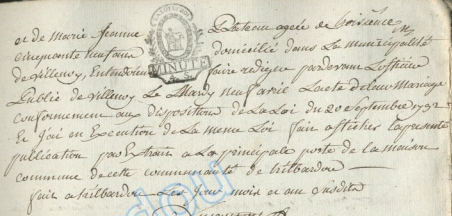 et de Marie Jeanne agée de soixante
cinquante neuf ans domicilié dans La municipalité
de villenoy, Entendu faire rediger pardevant Loffician
MINUTE
Public de villenoy Le Mardy neuf avril Lacte de leur Mariage
conformement aux disposition de La Loi du 20 septembre 1792
Et Jai en Execution de La meme Loi fait afficher La presente
publication par Extrait a La principale porte de la maison
commune de cette communauté de trilbardou
fait a trilbardou Les Jour mois et an susdits